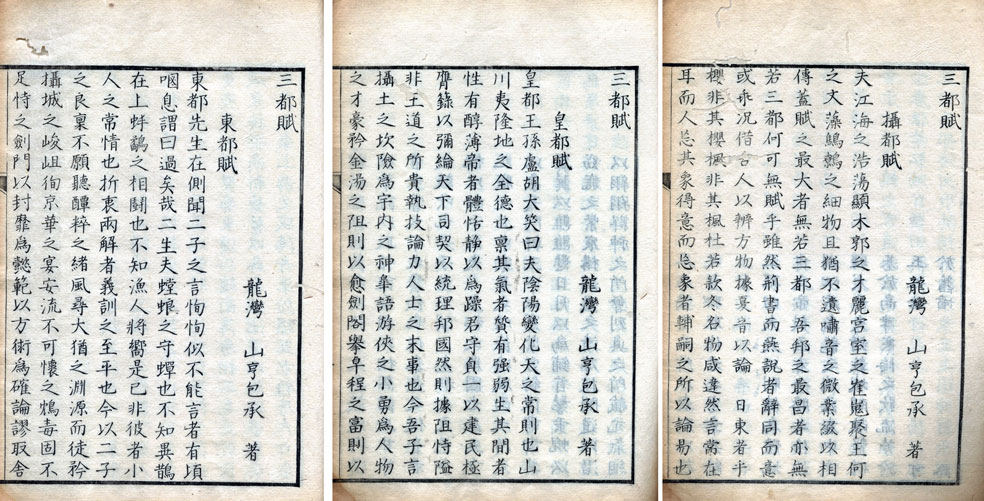 三都賦
攝都賦
龍灣 山亨包承 著
夫江海之浩蕩顯木郭之才麗宮室之崔嵬聚王何
之文藻鷦鷯之細物且猶不遺嘯音之微業綴以相
傳蓋賦之最大者無若三都而吾邦之最昌者亦無
若三都何可無賦乎雖然荊書而燕說者辭同而意
或乖况借古人以辨方物據夏音以論 日東者乎
櫻非其櫻楓非其楓杜若款冬名物咸違然言常在
耳而人忘其象得意而忘象者輔嗣之所以論易也
三都賦
皇都賦
龍灣 山亨包承 著
皇都王孫盧胡大笑曰夫陰陽變化天之常則也山
川夷隆地之全德也稟其氣者質有强弱生其間者
性有醇薄帝者體恬靜以爲躁君守貞一以建民極
膺籙以彌綸天下司契以統理邦國然則據阻恃隘
非王道之所貴執技論力人士之末事也今吾子言
攝土之坎險爲宇内之神皐語游俠之小勇爲人物
之才豪矜金湯之阻則以愈劍閣舉阜程之富則以
三都賦
東都賦
龍灣 山亨包承 著
東都先生在側聞二子之言恂恂似不能言者有頃
咽息謂曰過矣哉二生夫螳蜋之守蟬也不知異鵲
在上蚌鷸之相鬪也不知漁人將嚮是已非彼者小
人之常情也折衷兩解者義訓之至平也今以二子
之良稟不願聽醰粹之緒風尋大猶之淵源而徒矜
攝城之峻岨徇京華之宴安流不可懷之鴆毒固不
足恃之劍門以封靡爲懿範以方術爲確論謬取舍